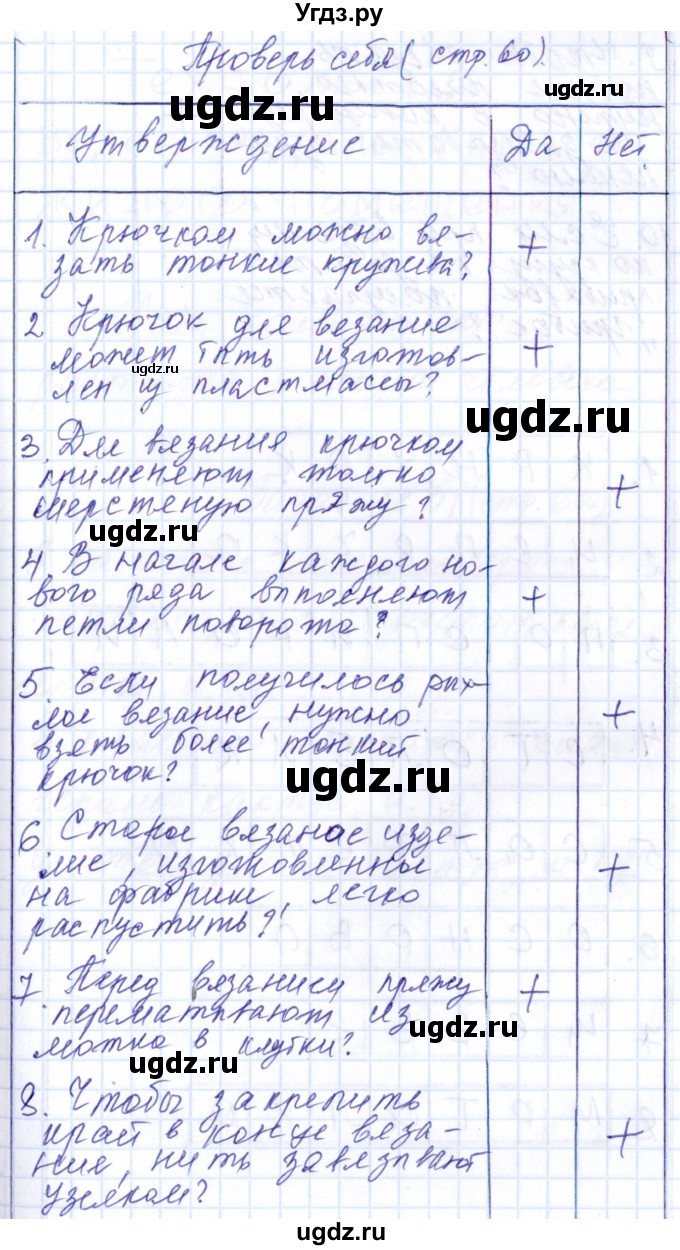 Угдз.ру
Проверь себя (стр. 60).
ugdz.ru
ugdz.ru
Утверждение Да Нет
1. Крючком можно вя- +
зать тонкие кружева?
2 Крючок для везание
может быть изготов- +
ugdz.ru
лен из пластмассы?
ugdz.ru
3. Для вязания крючком
применяют только
шерстеную пряжу? +
ugdz.ru
4 В начале каждого но-
вого ряда выполняют +
петли поворота?
ugdz.ru
5. Если получилось рых-
лое вязание, нужно +
взять более тонкий
крючок?
ugdz.ru
6 Старое вязаное изде-
лие, изготовленны +
на фабрики, легко
распустить?
ugdz.ru
7 Перед вязанием пряжу +
перематывают из
ugdz.ru
мотка в клубки?
ugdz.ru
8. Чтобы закрепить
край в конце вяза- +
ния, нить завязывают
узелком?
ugdz.ru
ugdz.ru